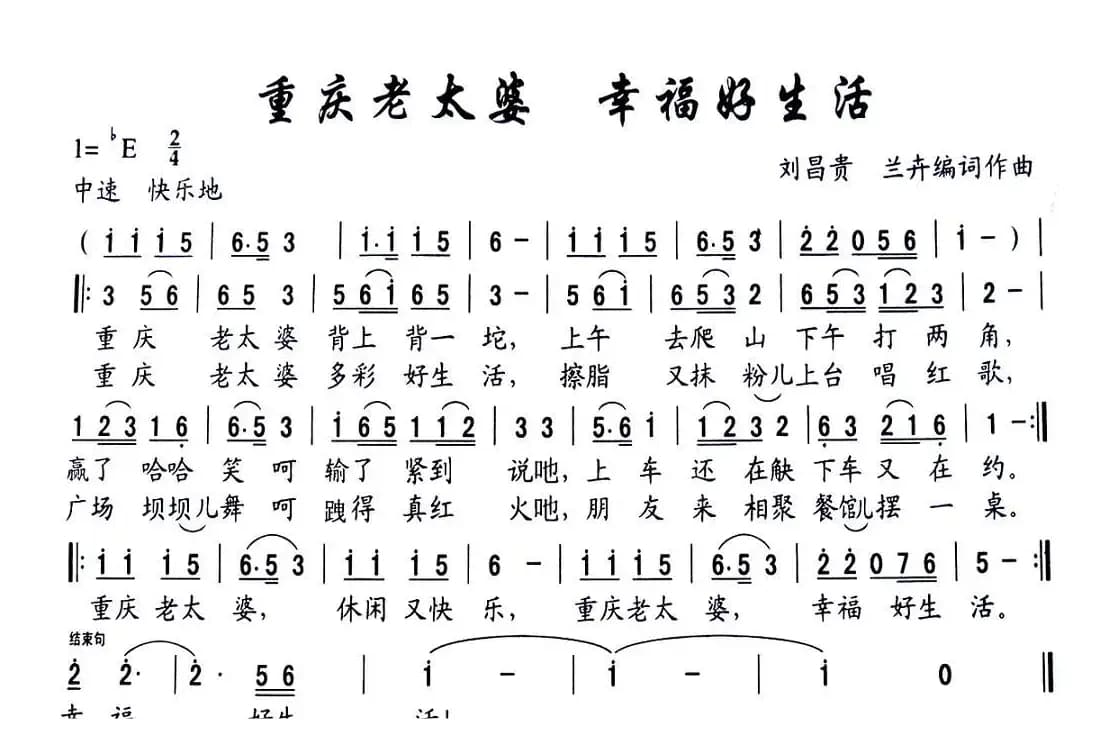 重庆老太婆 幸福好生活
1=♭E 2/4
刘昌贵 兰卉编词作曲
中速 快乐地
( i i i 5 | 6·5 3 | i·i i 5 | 6 – | i i i 5 | 6·5 3 | 2̇ 2̇ 0 5 6 | i – ) |
‖: 3 5 6 | 6 5 3 | 5 6 i 6 5 | 3 – | 5 6 i | 6 5 3 2 | 6 5 3 1 2 3 | 2 – |
重庆 老太婆 背上 背一 坨, 上午 去爬 山 下午 打 两 角,
重庆 老太婆 多彩 好生 活, 擦脂 又抹 粉儿上台 唱 红 歌,
1 2 3 1 6̣ | 6·5 3 | i 6 5 1 1 2 | 3 3 | 5·6 i | 1 2 3 2 | 6̣ 3 2 1 6̣ | 1 – :‖
赢了 哈哈 笑 呵 输了 紧到 说吔, 上 车 还 在觖 下车 又 在 约。
广场 坝坝儿舞 呵 跩得 真红 火吔, 朋 友 来 相聚 餐馆儿摆 一 桌。
‖: i i i 5 | 6·5 3 | i i i 5 | 6 – | i i i 5 | 6·5 3 | 2̇ 2̇ 0 7 6 | 5 – :‖
重庆 老太 婆, 休闲 又快 乐, 重庆老太 婆, 幸福 好生 活。
结束句
2̇ 2̇· | 2̇· 5 6 | i – | i – | i 0 ‖
幸 福 好生 活!